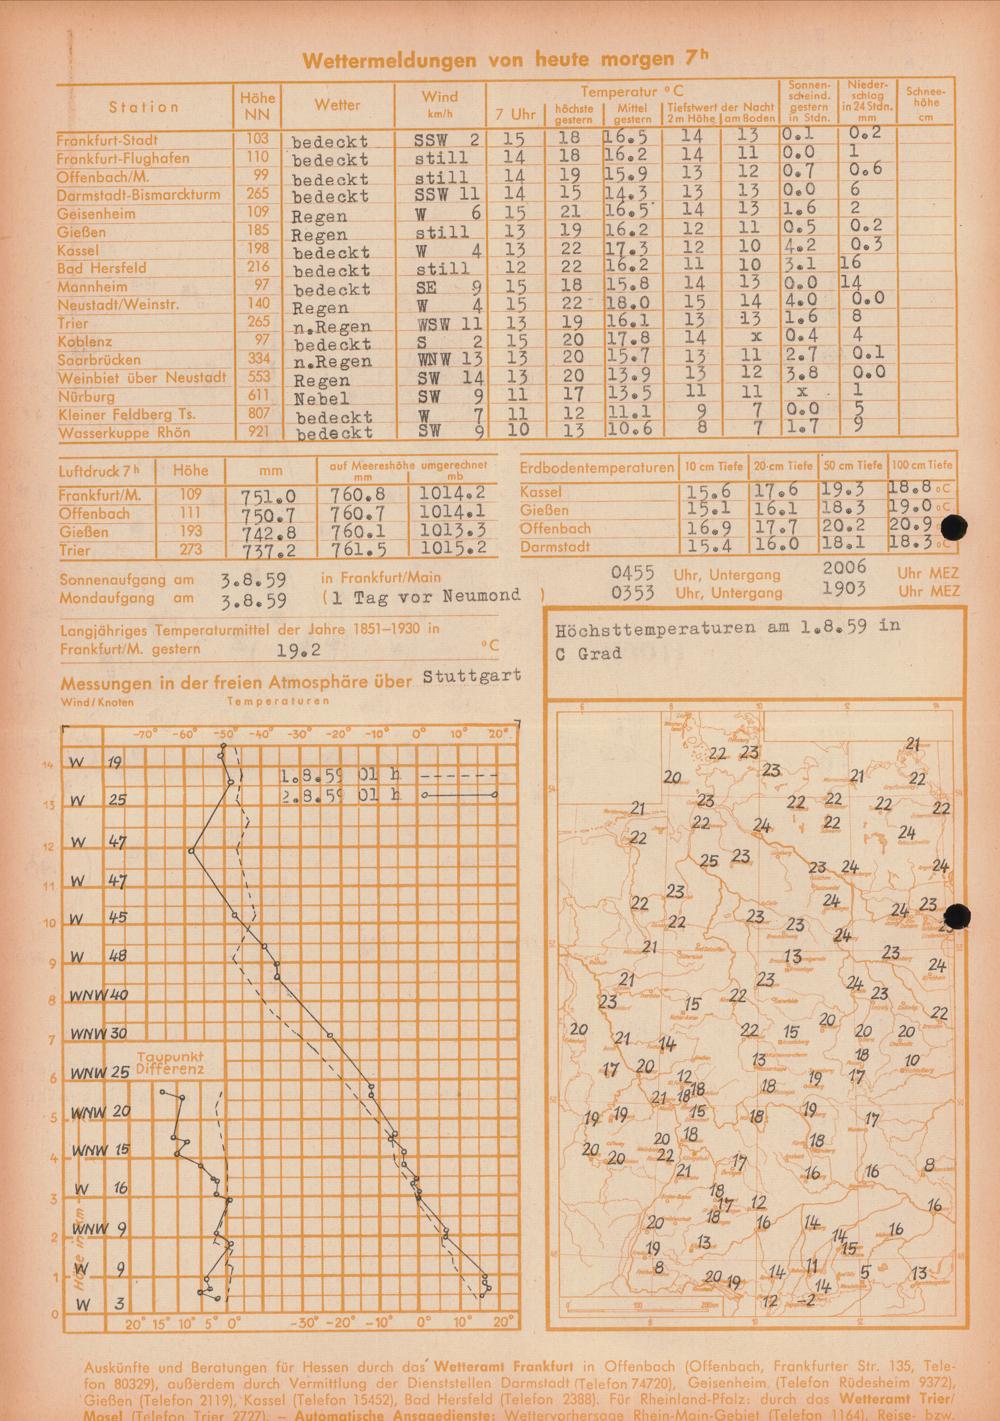 Wettermeldungen von heute morgen 7ʰ
Station Höhe NN Wetter Wind km/h Temperatur °C Sonnen-scheind. gestern in Stdn. Nieder-schlag in 24 Stdn. mm Schnee-höhe cm
7 Uhr höchste gestern Mittel gestern Tiefstwert der Nacht 2 m Höhe am Boden
Frankfurt-Stadt 103 bedeckt SSW 2 15 18 16.5 14 13 0.1 0.2
Frankfurt-Flughafen 110 bedeckt still 14 18 16.2 14 11 0.0 1
Offenbach/M. 99 bedeckt still 14 19 15.9 13 12 0.7 0.6
Darmstadt-Bismarckturm 265 bedeckt SSW 11 14 15 14.3 13 13 0.0 6
Geisenheim 109 Regen W 6 15 21 16.5 14 13 1.6 2
Gießen 185 Regen still 13 19 16.2 12 11 0.5 0.2
Kassel 198 bedeckt W 4 13 22 17.3 12 10 4.2 0.3
Bad Hersfeld 216 bedeckt still 12 22 16.2 11 10 3.1 16
Mannheim 97 bedeckt SE 9 15 18 15.8 14 13 0.0 14
Neustadt/Weinstr. 140 Regen W 4 15 22 18.0 15 14 4.0 0.0
Trier 265 n.Regen WSW 11 13 19 16.1 13 13 1.6 8
Koblenz 97 bedeckt S 2 15 20 17.8 14 x 0.4 4
Saarbrücken 334 n.Regen WNW 13 13 20 15.7 13 11 2.7 0.1
Weinbiet über Neustadt 553 Regen SW 14 13 20 13.9 13 12 3.8 0.0
Nürburg 611 Nebel SW 9 11 17 13.5 11 11 x 1
Kleiner Feldberg Ts. 807 bedeckt W 7 11 12 11.1 9 7 0.0 5
Wasserkuppe Rhön 921 bedeckt SW 9 10 13 10.6 8 7 1.7 9
Luftdruck 7ʰ Höhe mm auf Meereshöhe umgerechnet mm mb
Frankfurt/M. 109 751.0 760.8 1014.2
Offenbach 111 750.7 760.7 1014.1
Gießen 193 742.8 760.1 1013.3
Trier 273 737.2 761.5 1015.2
Erdbodentemperaturen 10 cm Tiefe 20 cm Tiefe 50 cm Tiefe 100 cm Tiefe
Kassel 15.6 17.6 19.3 18.8 °C
Gießen 15.1 16.1 18.3 19.0 °C
Offenbach 16.9 17.7 20.2 20.9
Darmstadt 15.4 16.0 18.1 18.3 °C
Sonnenaufgang am 3.8.59 in Frankfurt/Main 0455 Uhr, Untergang 2006 Uhr MEZ
Mondaufgang am 3.8.59 (1 Tag vor Neumond ) 0353 Uhr, Untergang 1903 Uhr MEZ
Langjähriges Temperaturmittel der Jahre 1851–1930 in
Frankfurt/M. gestern 19.2 °C
Messungen in der freien Atmosphäre über Stuttgart
Wind/Knoten Temperaturen
-70° -60° -50° -40° -30° -20° -10° 0° 10° 20°
1.8.59 01 h
2.8.59 01 h
14 W 19
13 W 25
12 W 47
11 W 47
10 W 45
9 W 48
8 WNW 40
7 WNW 30
6 WNW 25
Taupunkt
Differenz
5 WNW 20
4 WNW 15
3 W 16
2 WNW 9
1 W 9
0 W 3
Höhe in km
20° 15° 10° 5° 0° -30° -20° -10° 0° 10° 20°
Höchsttemperaturen am 1.8.59 in
C Grad
22 23 21
20 23 21 22
21 23 22 22 22 22
22 22 24 22 24
25 23 23 24 24
23 22 24 24 23
22 23 23 24 23
21 13 23 24
21 23 24 23
23 15 22 22
20 21 14 22 15 20 20 20
17 20 12 13 18 10
21 18 18 18 19 17
19 19 15 18 19 17
20 20 20 18 22 18
21 17 16 16 8
18 17 18 12 16 14 16 16
20 19 13 14 15
8 20 19 14 11 14 5 13
12 -2
Auskünfte und Beratungen für Hessen durch das Wetteramt Frankfurt in Offenbach (Offenbach, Frankfurter Str. 135, Tele-
fon 80329), außerdem durch Vermittlung der Dienststellen Darmstadt (Telefon 74720), Geisenheim (Telefon Rüdesheim 9372),
Gießen (Telefon 2119), Kassel (Telefon 15452), Bad Hersfeld (Telefon 2388). Für Rheinland-Pfalz: durch das Wetteramt Trier/
Mosel (Telefon Trier 2727). — Automatische Ansagedienste: Wettervorhersage Rhein-Main-Gebiet (Telefon 1164), Reise- bzw.